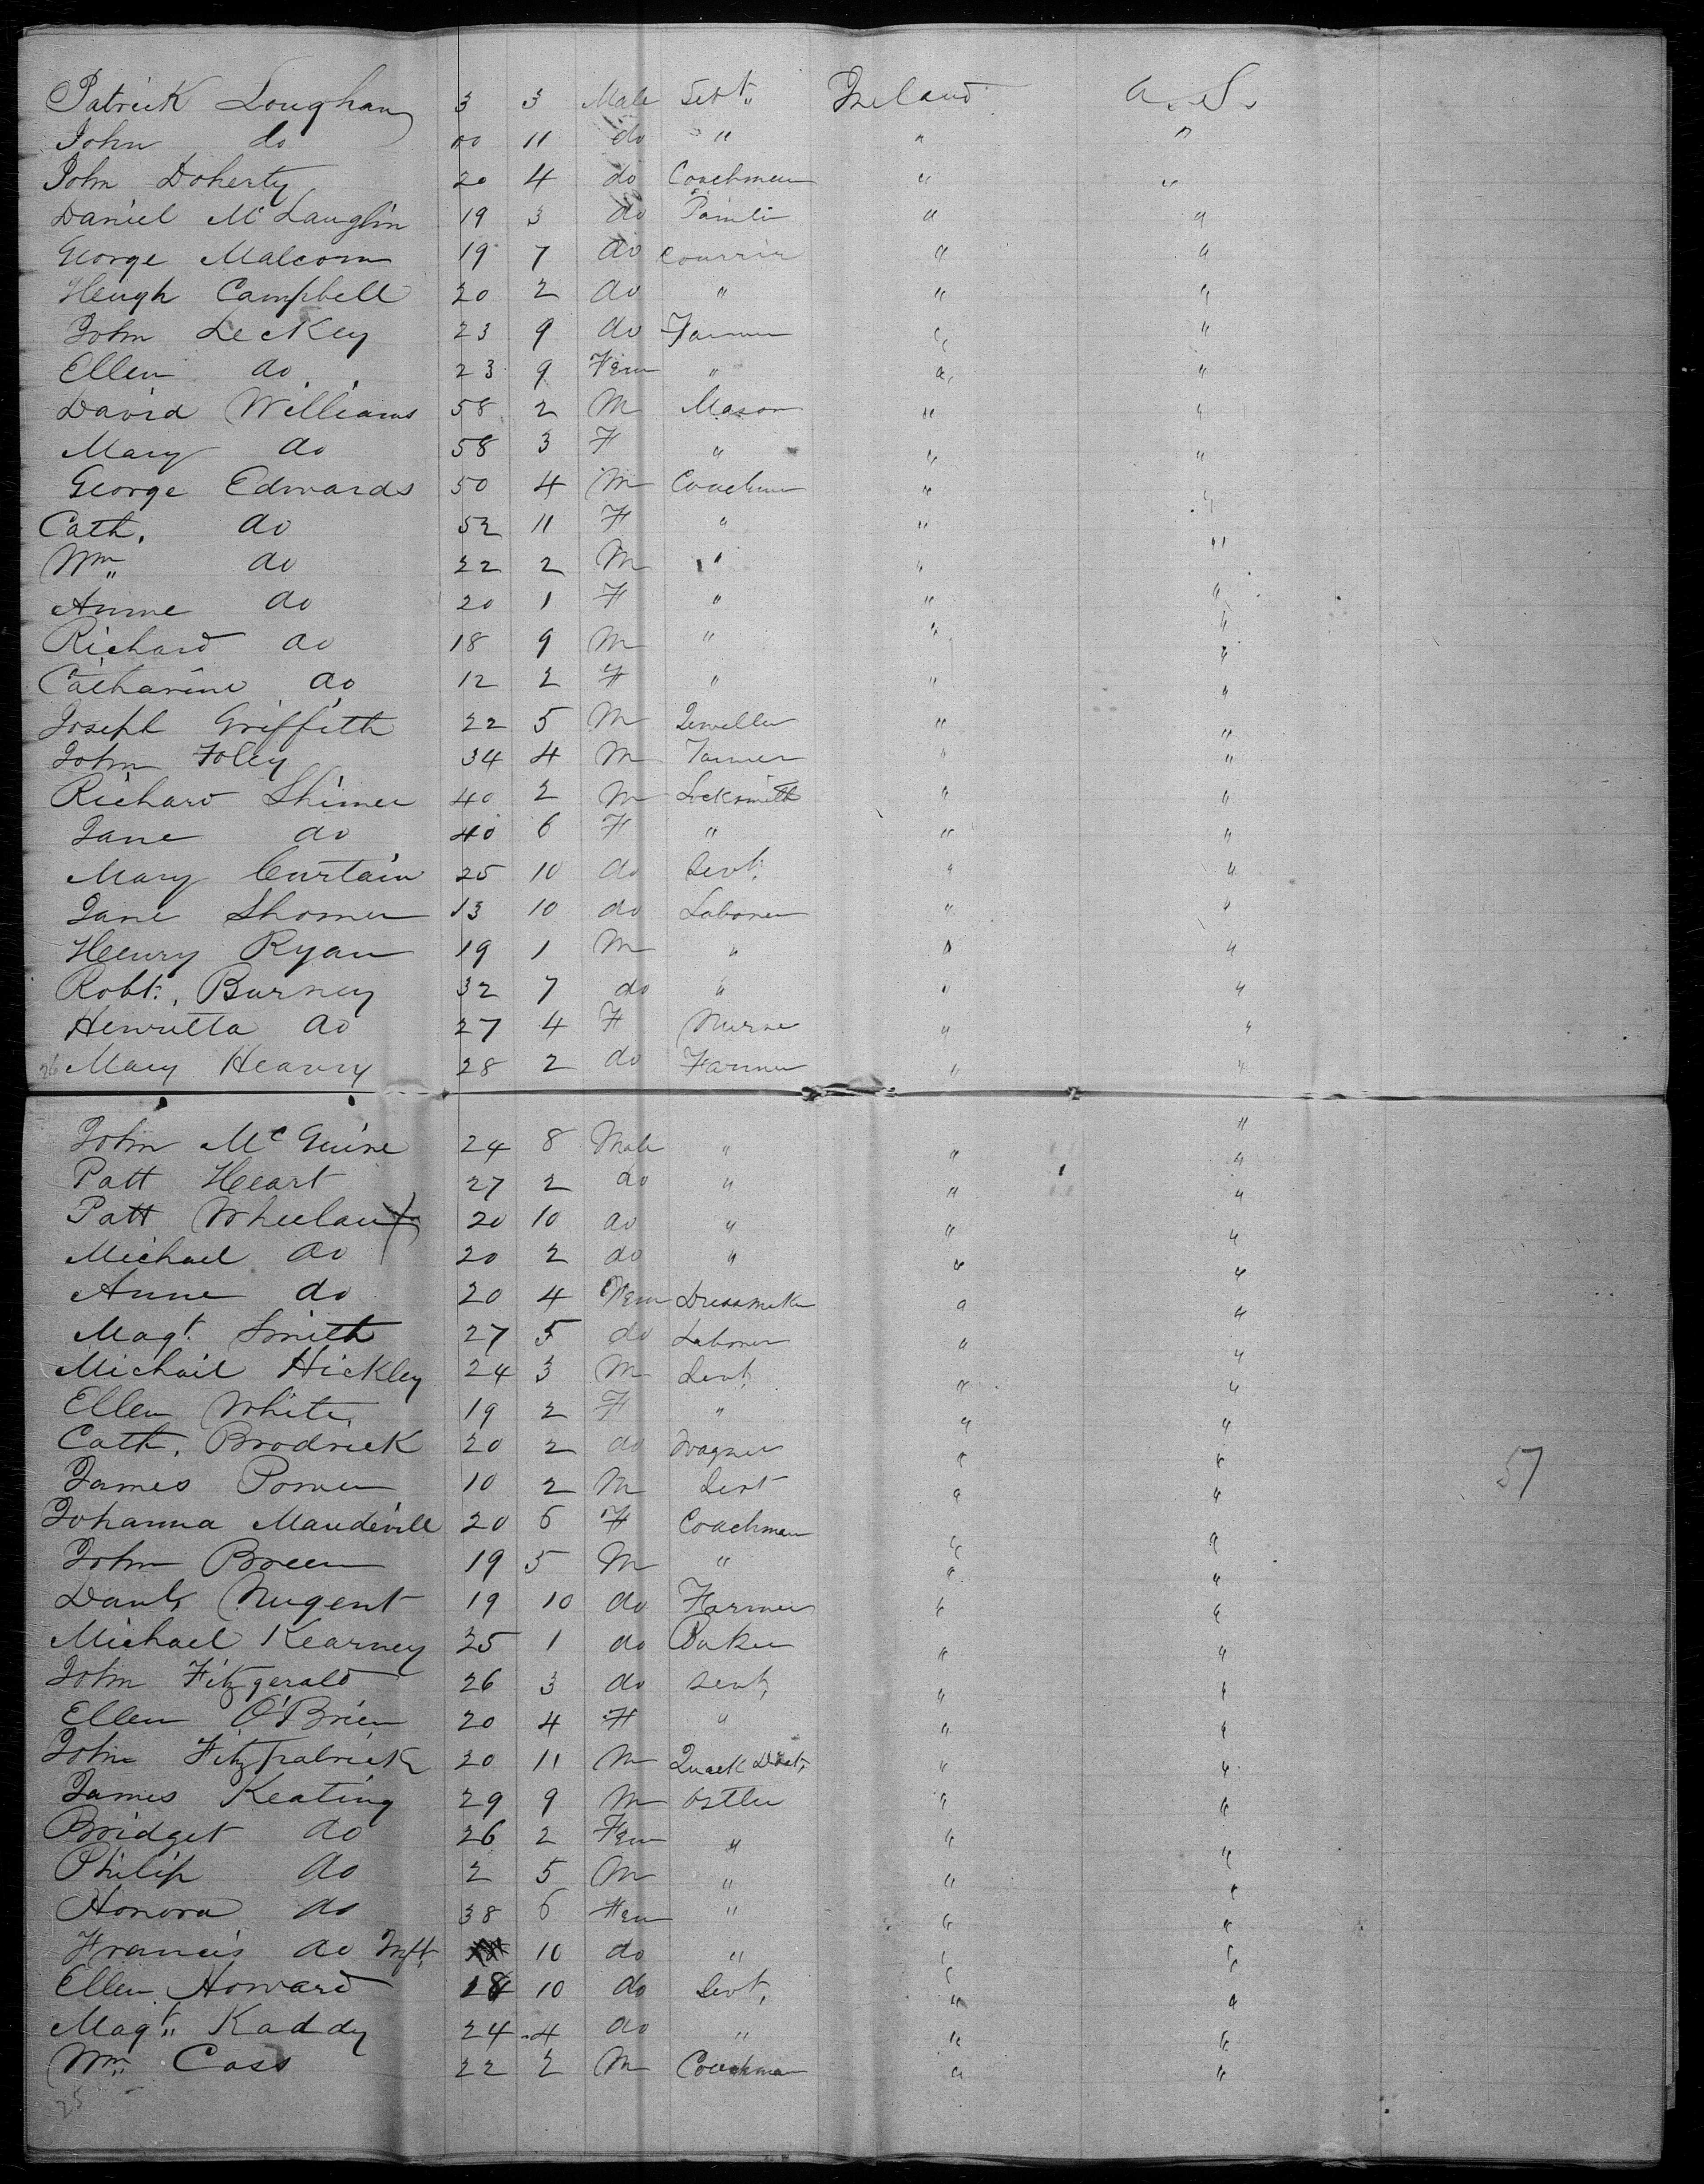 Patrick Loughan 3 3 Male Sevt. Ireland U. S.
John do 00 11 do " " "
John Doherty 20 4 do Coachman " "
Daniel McLauglin 19 3 do " "
George Malcom 19 7 do Courrier " "
Heugh Campbell 20 2 do " " "
John Leckey 23 9 do Farmer " "
Ellen do 23 9 Fem " " "
David Williams 58 2 M Mason " "
Mary do 58 3 F " " "
George Edwards 50 4 M Coachman " "
Cath. do 52 11 F " " "
Wm do 22 2 M " " "
Anne do 20 1 F " " "
Richard do 18 9 M " " "
Catharine do 12 2 F " " "
Joseph Griffith 22 5 M Jeweller " "
John Foley 34 4 M Farmer " "
Richard Shimer 40 2 M Locksmith " "
Jane do 40 6 F " " "
Mary Curtain 25 10 do Sevt. " "
Jane Shomer 13 10 do Laborer " "
Henry Ryan 19 1 M " " "
Robt. Burney 32 7 do " " "
Henrietta do 27 4 F Nurse " "
26 Mary Heavry 28 2 do Farmer " "
John McGuire 24 8 Male " " "
Patt Heart 27 2 do " " "
Patt Wheelan 20 10 do " " "
Michael do 20 2 do " " "
Anne do 20 4 Fem Dressmaker " "
Magt. Smith 27 5 do Laborer " "
Michail Hickley 24 3 M Sevt. " "
Ellen White 19 2 F " " "
Cath. Brodrick 20 2 do Wagner " "
James Power 10 2 M Sevt " " 57
Johanna Maudevill 20 6 F Coachman " "
John Breen 19 5 M " " "
Danl. Nugent 19 10 do Farmer " "
Michael Kearney 35 1 do Baker " "
John Fitzgerald 26 3 do Sevt. " "
Ellen O'Brien 20 4 F " " "
John Fitzpatrick 30 11 M Quack Doct. " "
James Keating 29 9 M Ostler " "
Bridget do 26 2 Fem " " "
Philip do 2 5 M " " "
Honora do 38 6 Fem " " "
Francis do Inft. 10 do " " "
Ellen Howard 18 10 do Sevt. " "
Magt. Kaddy 24 4 do " " "
Wm. Cass 22 2 M Coachman " "
25